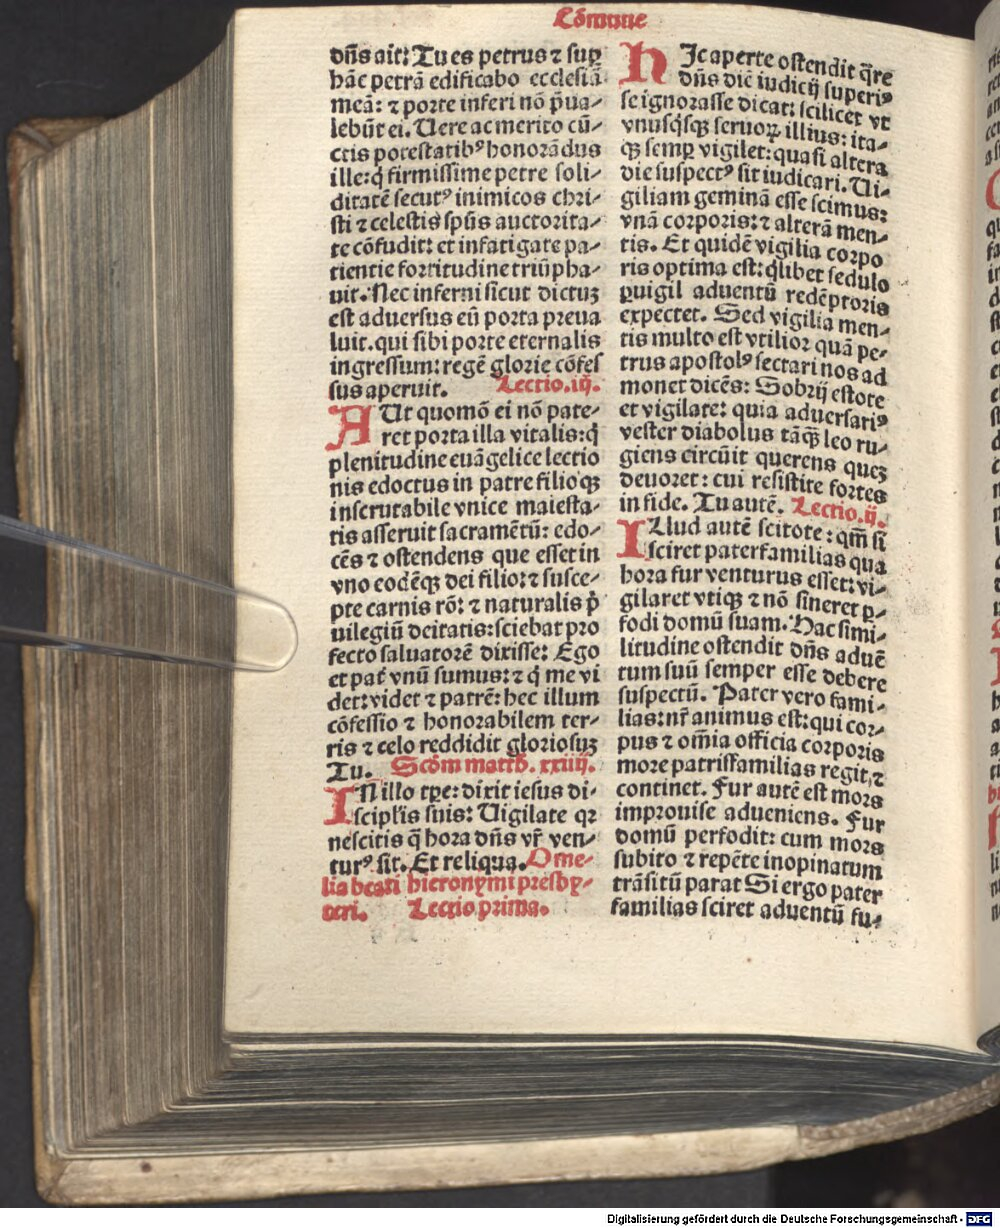 Cõmune
dñs ait: Tu es petrus ⁊ sup
hãc petrã edificabo ecclesiã
meã: ⁊ porte inferi nõ p̃ua-
lebũt ei. Uere ac merito cũ-
ctis potestatibꝰ honorãdus
ille: q̃ firmissime petre soli-
ditatẽ secutꝰ inimicos chri-
sti ⁊ celestis spũs auctorita-
te cõfudit: et infatigate pa-
tientie fortitudine triũpha-
uit. Nec inferni sicut dictuʒ
est aduersus eũ porta preua
luit. qui sibi porte eternalis
ingressum: regẽ glorie cõfes
sus aperuit. Lectio.iij.
AUt quomõ ei nõ pate-
ret porta illa vitalis: q̃
plenitudine euãgelice lectio
nis edoctus in patre filioqʒ
inscrutabile vnice maiesta-
tis asseruit sacramẽtũ: edo-
cẽs ⁊ ostendens que esset in
vno eodẽqʒ dei filio: ⁊ susce-
pte carnis rõ: ⁊ naturalis p̃
uilegiũ deitatis: sciebat pro
fecto saluatorẽ dixisse: Ego
et pat̃ vnũ sumus: ⁊ q̃ me vi
det: videt ⁊ patrẽ: hec illum
cõfessio ⁊ honorabilem ter-
ris ⁊ celo reddidit gloriosuʒ
Tu. Scđm matth. xxiiij.
IN illo tp̃e: dixit iesus di-
scipl'is suis: Uigilate qꝛ
nescitis q̃ hora dñs vr̃ ven-
turꝰ sit. Et reliqua. Ome-
lia beati hieronymi presby-
teri. Lectio prima.
HJc aperte ostendit q̃re
dñs diẽ iudicij superiꝰ
se ignorasse dicat: scilicet vt
vnusq̃sqʒ seruoꝝ illius: ita-
qʒ semꝑ vigilet: quasi altera
die suspectꝰ sit iudicari. Ui-
giliam geminã esse scimus:
vnã corporis: ⁊ alterã men-
tis. Et quidẽ vigilia corpo
ris optima est: q̃libet sedulo
ꝑuigil aduentũ redẽptoris
expectet. Sed vigilia men-
tis multo est vtilior quã pe-
trus apostolꝰ sectari nos ad
monet dicẽs: Sobrij estote
et vigilate: quia aduersariꝰ
vester diabolus tãqʒ leo ru-
giens circũit querens queʒ
deuoret: cui resistite fortes
in fide. Tu autẽ. Lectio.ij.
ILlud autẽ scitote: qm̃ si
sciret paterfamilias qua
hora fur venturus esset: vi-
gilaret vtiqʒ ⁊ nõ sineret ꝑ-
fodi domũ suam. Hac simi-
litudine ostendit dñs aduẽ
tum suũ semper esse debere
suspectũ. Pater vero fami-
lias: nr̃ animus est: qui cor-
pus ⁊ om̃ia officia corporis
more patrisfamilias regit, ⁊
continet. Fur autẽ est mors
improuise adueniens. Fur
domũ perfodit: cum mors
subito ⁊ repẽte inopinatum
trãsitũ parat Si ergo pater
familias sciret aduentũ fu-
Digitalisierung gefördert durch die Deutsche Forschungsgemeinschaft - DFG